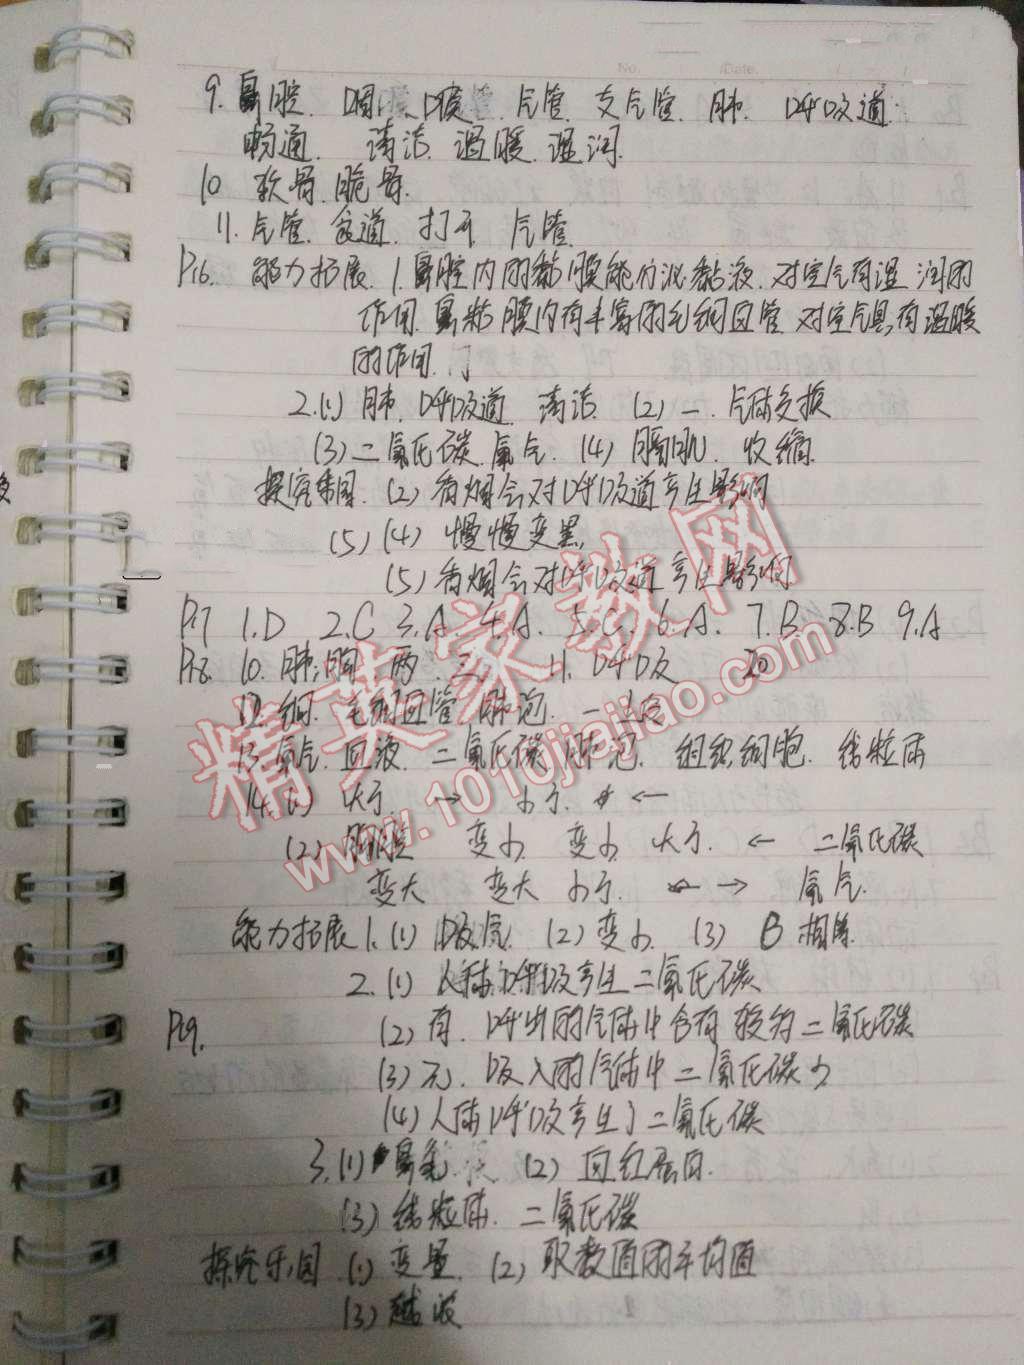 No. Date.
9. 鼻腔. 咽 喉 气管. 支气管. 肺. 呼吸道.
畅通. 清洁. 温暖. 湿润.
10 软骨. 脆骨.
11. 气管. 食道. 打开 气管.
P16. 能力拓展. 1. 鼻腔内的黏膜能分泌黏液. 对空气有湿润的
作用. 鼻粘膜内有丰富的毛细血管 对空气具有温暖
的作用.
2.(1) 肺. 呼吸道 清洁. (2) 一. 气体交换
(3) 二氧化碳. 氧气. (4) 膈肌. 收缩.
探究乐园. (2) 香烟会对呼吸道产生影响
(5) (4) 慢慢变黑.
(5) 香烟会对呼吸道产生影响
P17 1.D 2.C 3.A. 4.A. 5.C. 6.A. 7.B. 8.B 9.A
P18. 10. 肺; 胸 两 11. 呼吸 20
12. 细. 毛细血管 肺泡. 一层
13. 氧气. 血液. 二氧化碳 肺泡. 组织细胞. 线粒体
14. (1) 大于 → 小于. ←
(2) 胸腔 变小 变小 大于. ← 二氧化碳
变大 变大 小于. → 氧气.
能力拓展 1. (1) 吸气. (2) 变小. (3) B 相等.
2. (1) 人体呼吸产生二氧化碳
P19. (2) 有. 呼出的气体中含有较多二氧化碳
(3) 无. 吸入的气体中二氧化碳少
(4) 人体呼吸产生了二氧化碳
3. (1) 鼻毛. (2) 血红蛋白.
(3) 线粒体. 二氧化碳
探究乐园 (1) 变量. (2) 取数值的平均值
(3)
精英家教网
www.1010jiajiao.com